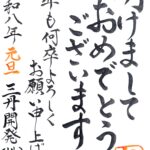 けまして
おめでとう
ございます
年も何卒よろしく
お願い申し上げ
和八年 元旦
三丹開発